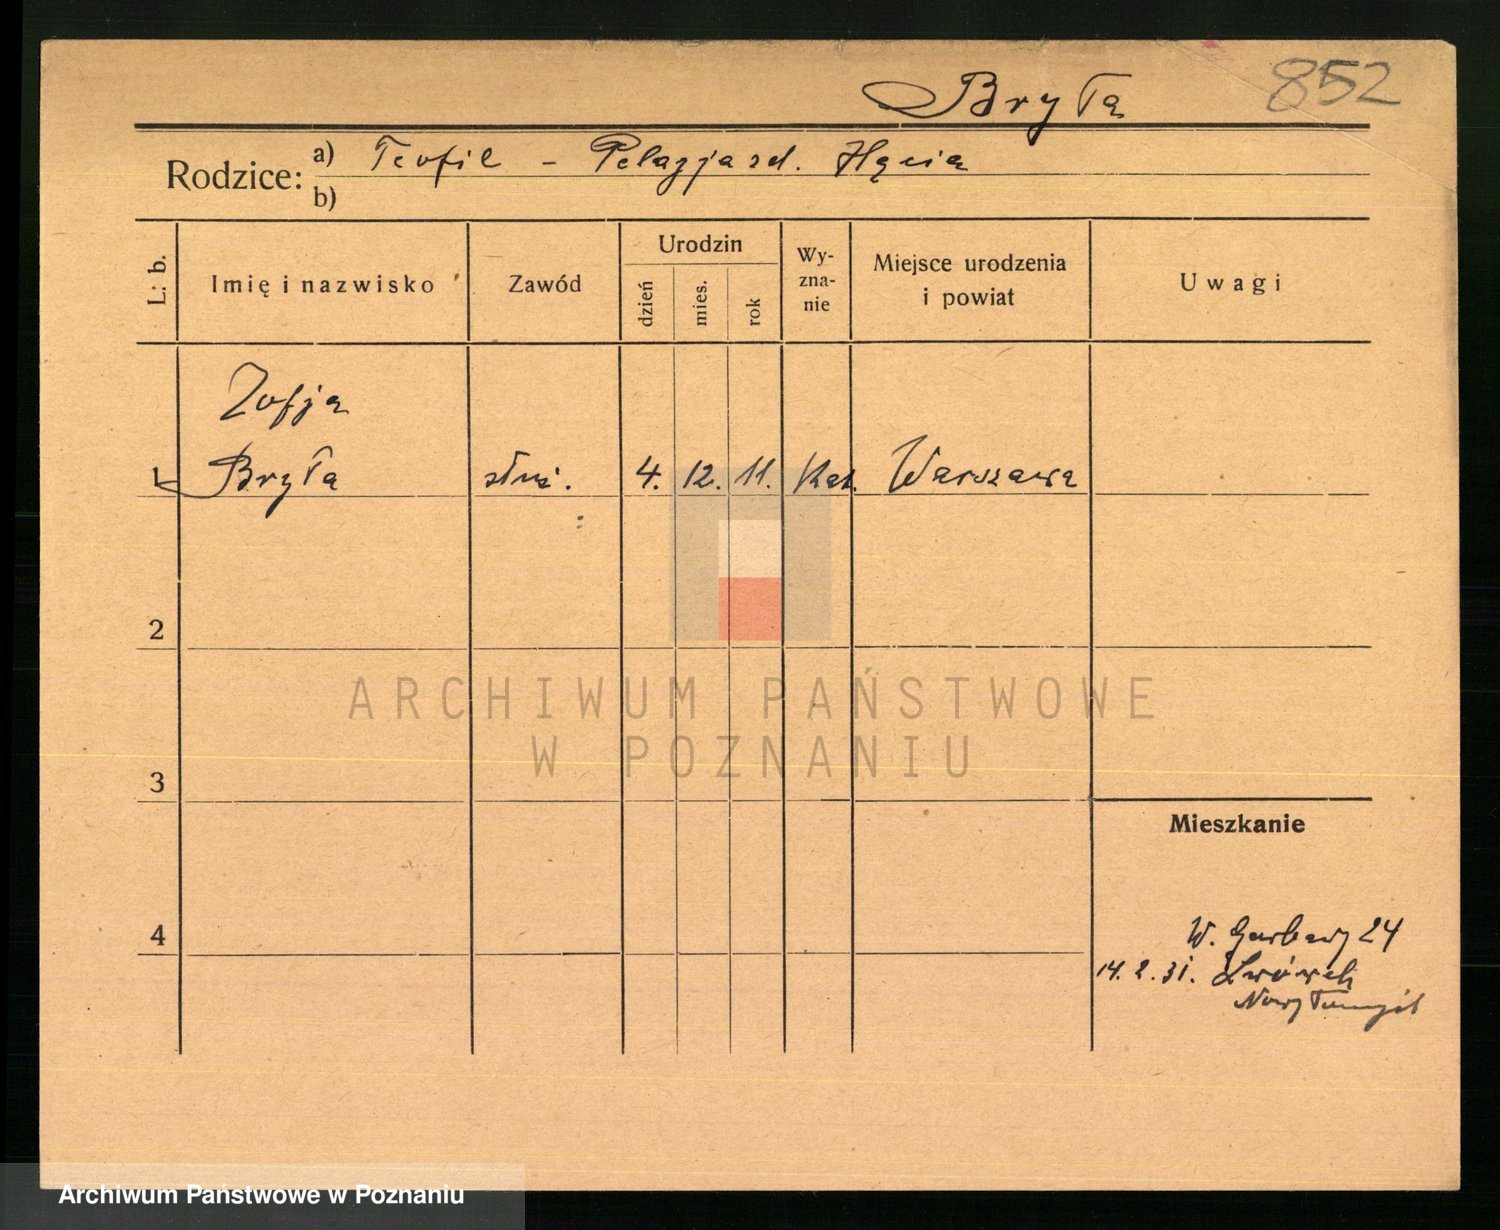 Bryła
852
Rodzice:
a) Teofil - Pelagja zd.
b)
L: b.
Imię i nazwisko
Zawód
Urodzin
dzień
mies.
rok
Wy-
zna-
nie
Miejsce urodzenia
i powiat
Uwagi
Zofja
Bryła służ. 4. 12. 11. Kat. Warszawa
2
ARCHIWUM PAŃSTWOWE
W POZNANIU
3
Mieszkanie
4
W. Garbary 24
14. 2. 31. Lwówek
Nowy Tomyśl
Archiwum Państwowe w Poznaniu